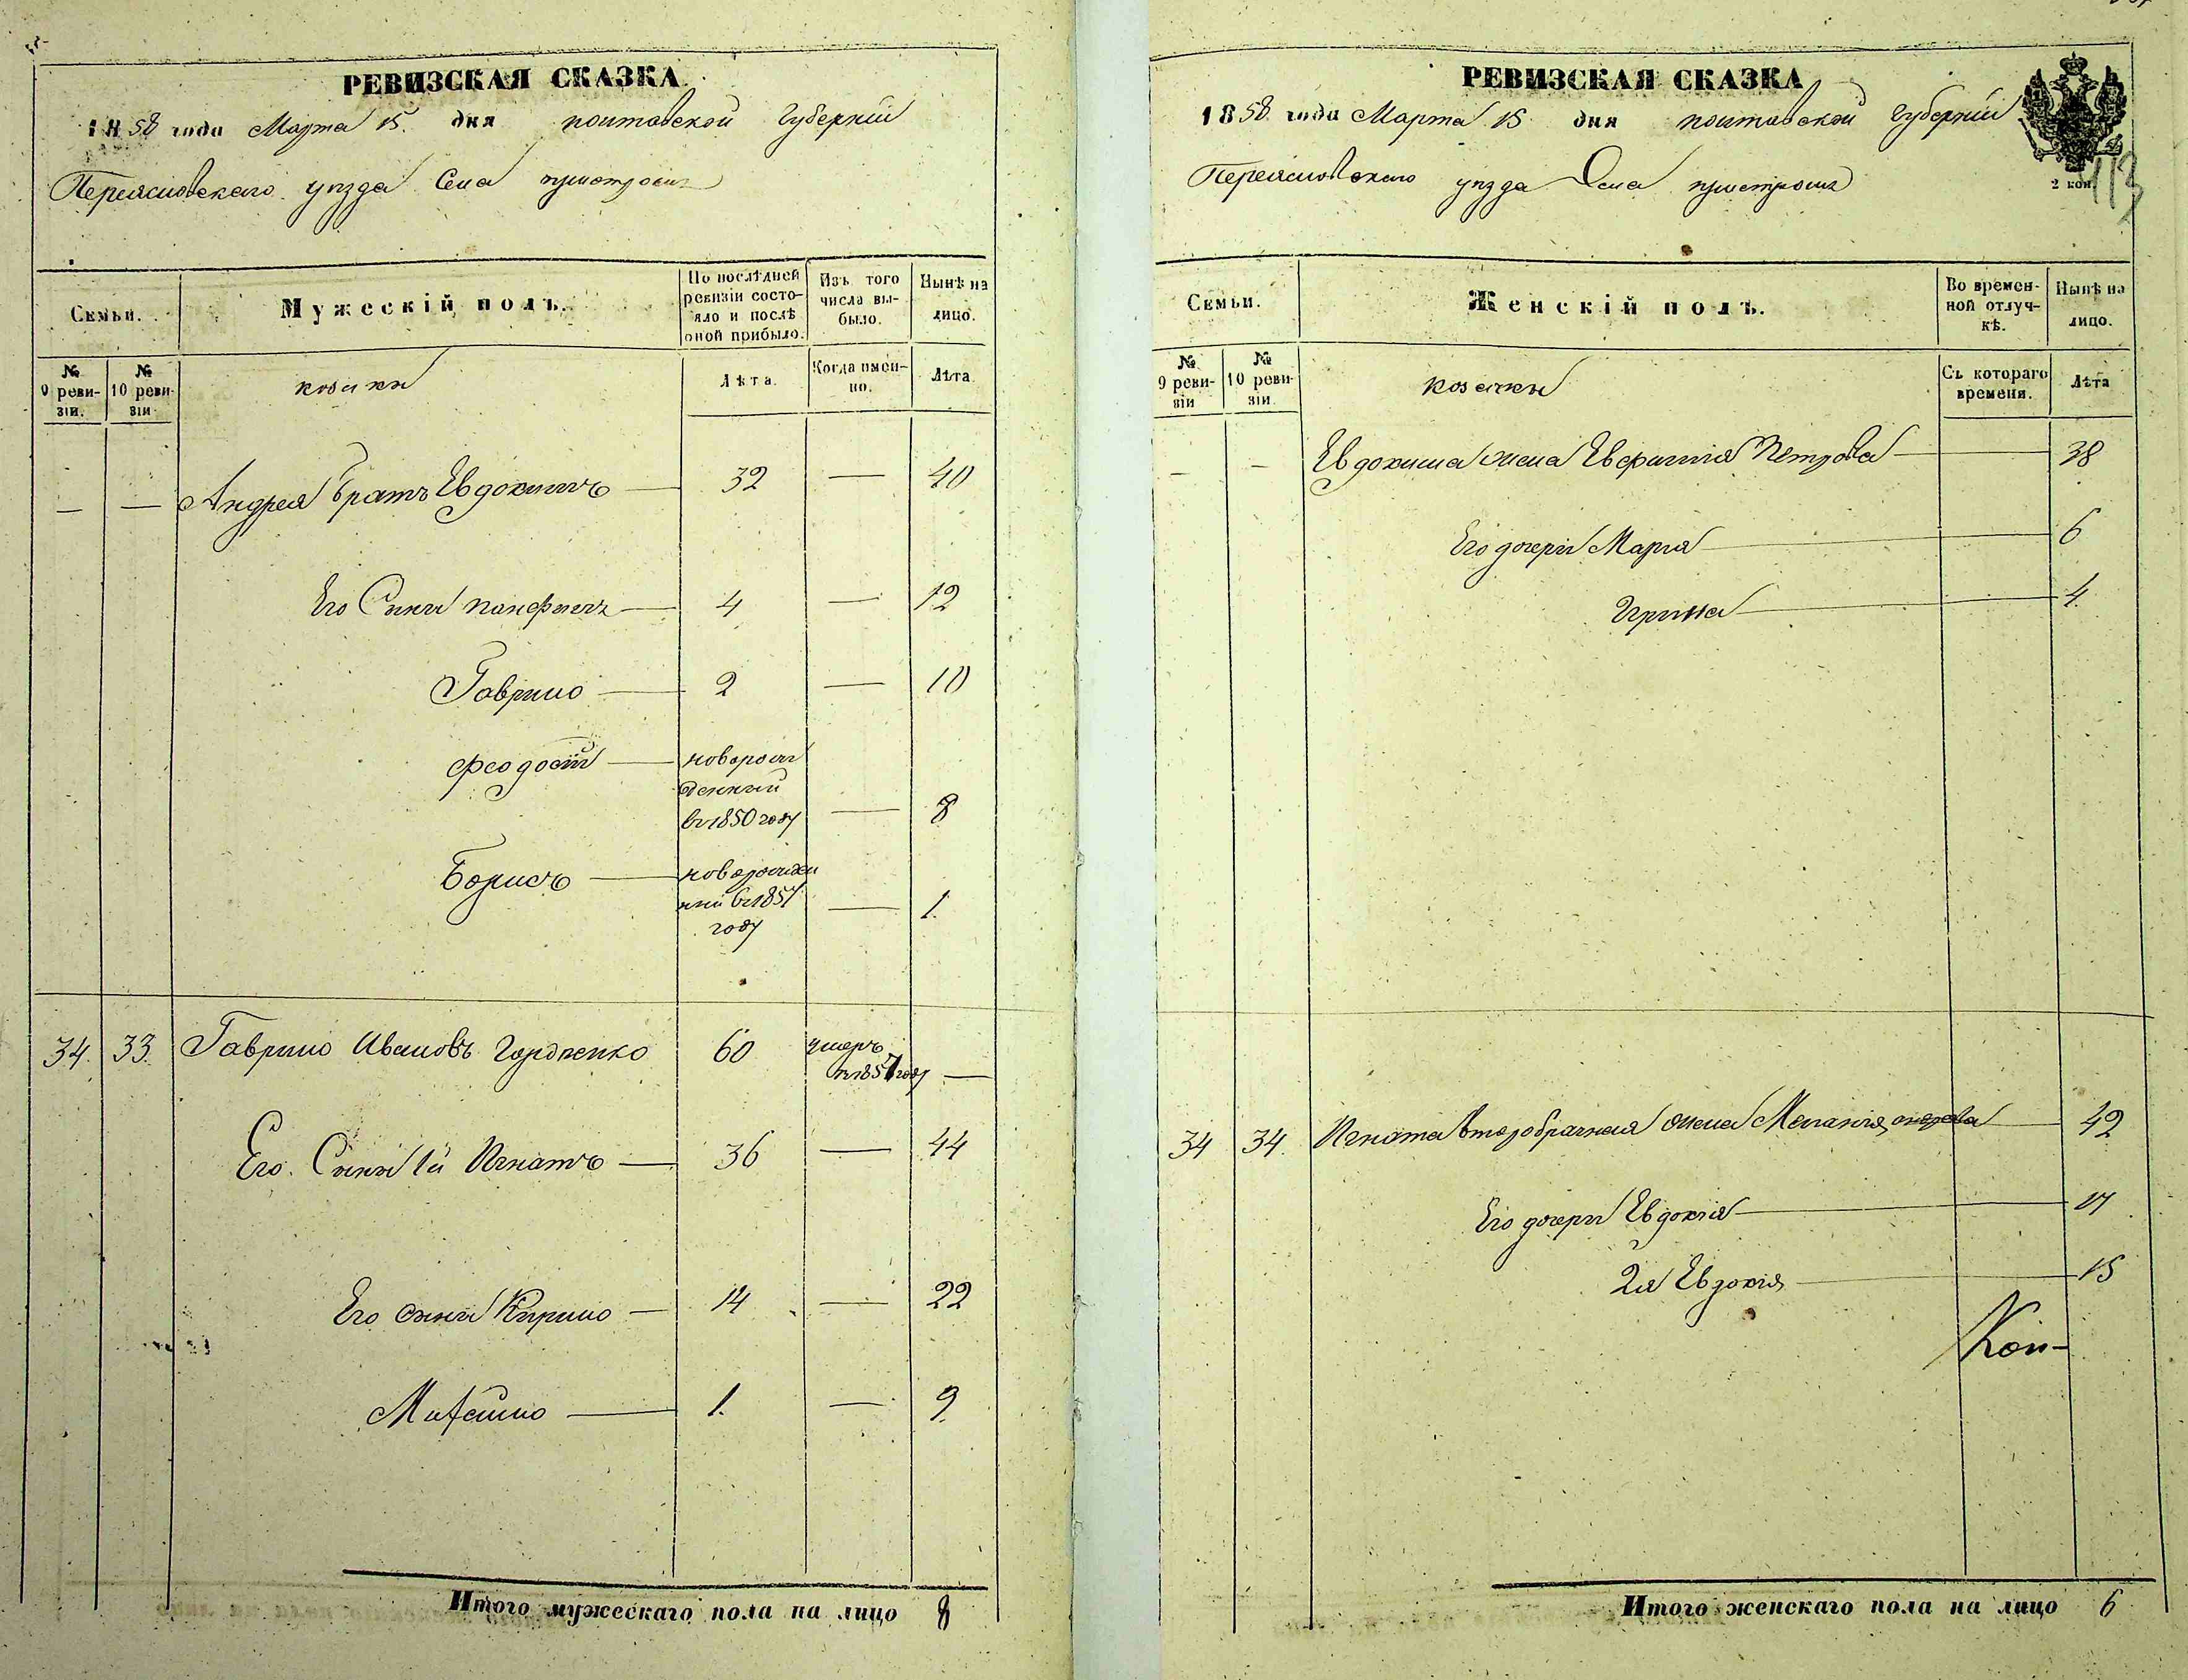 РЕВИЗСКАЯ СКАЗКА
1858 года Марта 15. дня полтавской Губерніи
Переясловскаго уѣзда Села
Семьи. Мужескій полъ. По послѣдней ревизіи состояло и послѣ оной прибыло. Изъ того числа выбыло. Нынѣ на лицо.
№ 9 ревизіи. № 10 ревизіи козаки Лѣта. Когда именно. Лѣта
— — Андрея братъ Евдокимъ — 32 — 40
Его Сыны панфилъ — 4 — 12
Гаврило — 2 — 10
Феодосій — новорож
денный
въ 1850 году — 8
Борисъ — новорожден
ный въ 1857
году — 1.
34. 33. Гаврило Ивановъ Гордѣенко 60 умеръ
въ 1857 году —
Его Сыны 1й Игнатъ — 36 — 44
Его сыны Кирило — 14 — 22
Михайло — 1. — 9
Итого мужескаго пола на лицо 8
РЕВИЗСКАЯ СКАЗКА
1858 года Марта 15 дня полтавской Губерніи
Переясловскаго уѣзда Села
2 коп.
113
Семьи. Женскій полъ. Во временной отлучкѣ. Нынѣ на лицо.
№ 9 ревизіи № 10 ревизіи козачки Съ котораго времени. Лѣта
— — Евдокима жена Евфимія Петрова — 38
Его дочери Марія — 6
Ирина — 4.
34 34. Игната второбрачная жена Меланія — 42
Его дочери Евдокія — 17
2я Евдокія — 15
Коп-
Итого женскаго пола на лицо 6